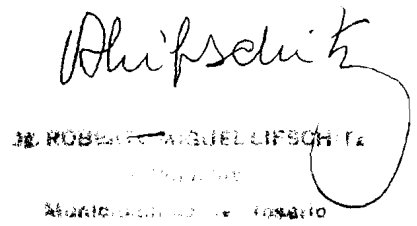 Lifschitz
ROBERTO MIGUEL LIFSCHITZ
Municipalidad de Rosario